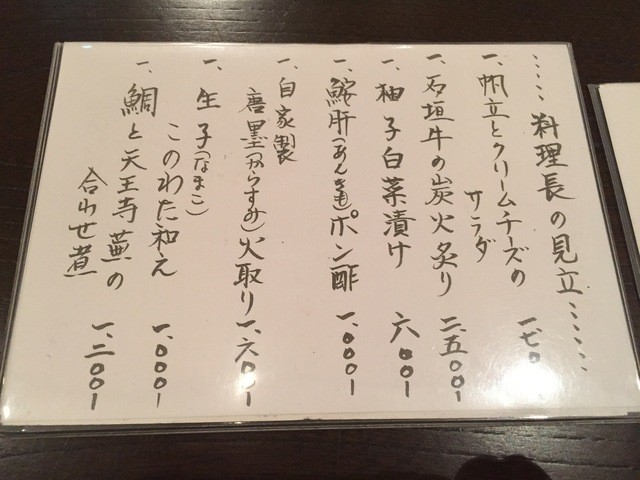 :::::料理長の見立:::::
一、帆立とクリームチーズの
サラダ
一、石垣牛の炭火炙り 二、五〇〇ー
一、柚子白菜漬け 六〇〇ー
一、鮟肝(あんきも)ポン酢 一、〇〇〇ー
一、自家製
唐墨(からすみ)火取り 一、六〇〇ー
一、生子(なまこ)
このわた和え 一、〇〇〇ー
一、鯛と天王寺蕪の
合わせ煮 一、二〇〇ー